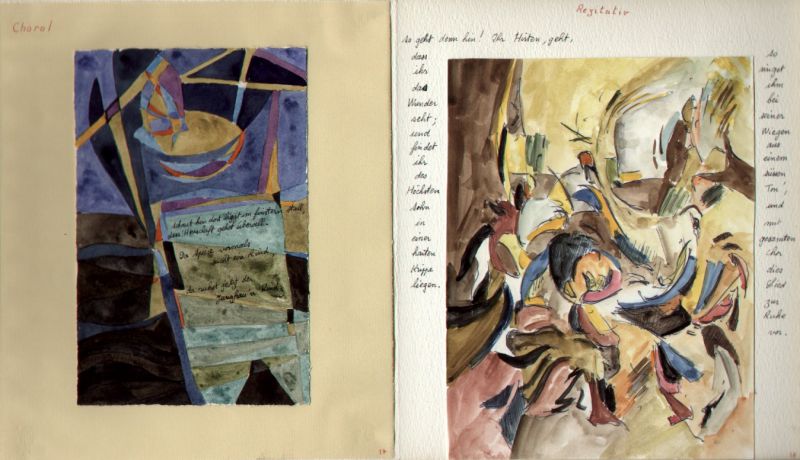 Choral
schaut hin dort liegt im finstern Stall,
des Herrschaft gehet überall.
Da Speise vormals
sucht ein Rind,
da ruhet jetzt der
Jungfrau'n Kind.
Rezitativ
so geht denn hin! Ihr Hirten, geht,
dass
ihr
das
Wunder
seht;
und
findet
ihr
des
Höchsten
Sohn
in
einer
harten
Krippe
liegen.
so
singet
ihm
bei
seiner
Wiegen
aus
einem
süssen
Ton,
und
mit
gesamten
Chor
dies
Lied
zur
Ruhe
vor.